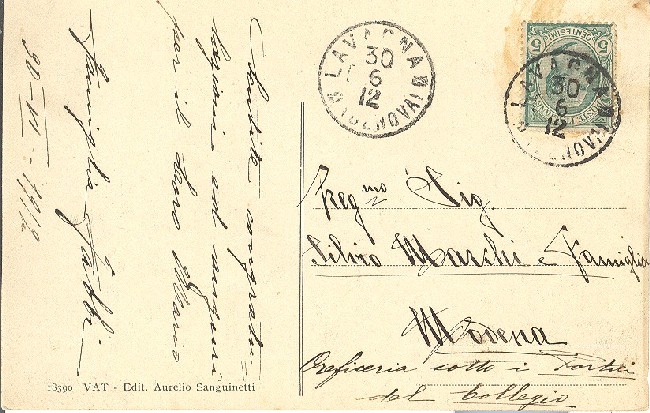 Sentite congratu-
lazioni ed auguri
per il loro
Famiglia
30-VI-1912
LAVAGNA
(GENOVA)
30
6
12
5
LAVAGNA
(GENOVA)
30
6
12
Preg.mo Sig.
Silvio Marchi e Famiglia
Modena
Oreficeria sotto i Portici
del Collegio
18390 VAT - Edit. Aurelio Sanguinetti